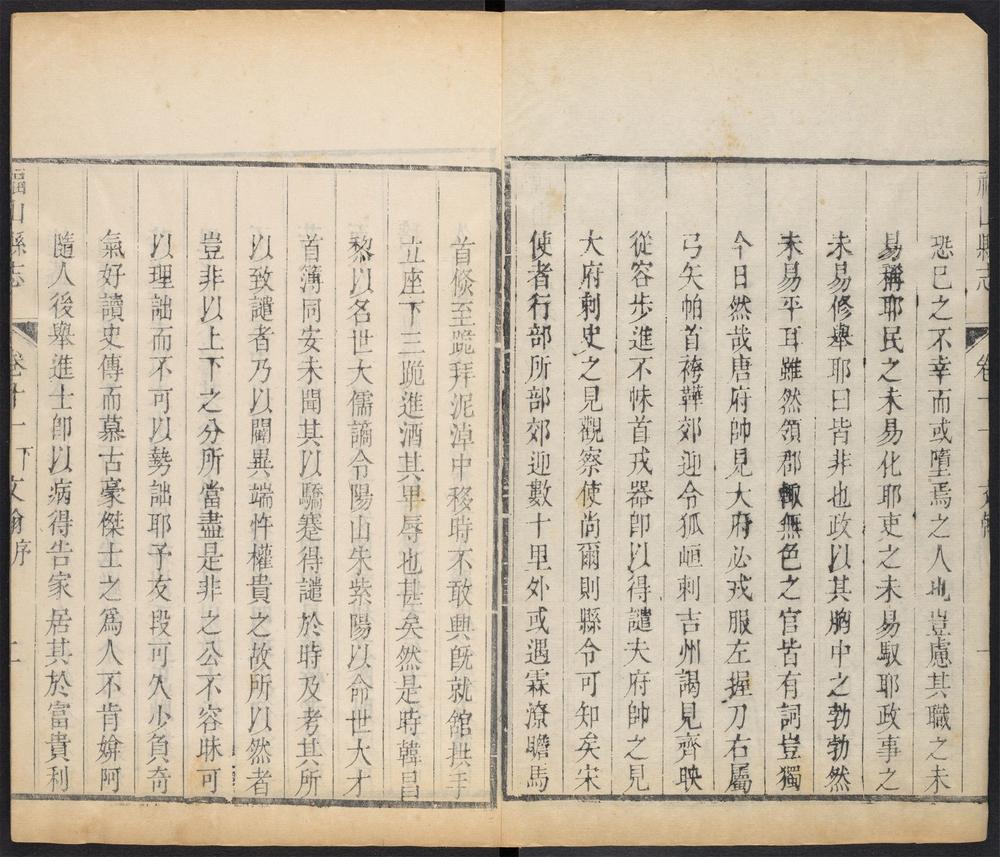 福山縣志
卷十一
文翰
恐已之不幸而或墮焉之人也豈慮其職之未
易稱耶民之未易化耶吏之未易馭耶政事之
未易修舉耶曰皆非也政以其胸中之勃勃然
未易平耳雖然領郡輙無色之官皆有詞豈獨
今日然哉唐府帥見大府必戎服左握刀右屬
弓矢帕首袴鞾郊迎令狐峘刺吉州謁見齊映
從容步進不帓首戎器卽以得譴夫府帥之見
大府刺史之見觀察使尚爾則縣令可知矣宋
使者行部所部郊迎數十里外或遇霖潦瞻馬
首倏至跪拜泥淖中移時不敢興旣就舘拱手
立座下三跪進酒其卑辱也甚矣然是時韓昌
黎以名世大儒謫令陽山朱紫陽以命世大才
首簿同安未聞其以驕蹇得譴於時及考其所
以致譴者乃以闢異端忤權貴之故所以然者
豈非以上下之分所當盡是非之公不容昧可
以理詘而不可以勢詘耶予友段可久少負奇
氣好讀史傳而慕古豪傑士之爲人不肯媕阿
隨人後舉進士卽以病得告家居其於富貴利
福山縣志
卷十一下文翰序
二